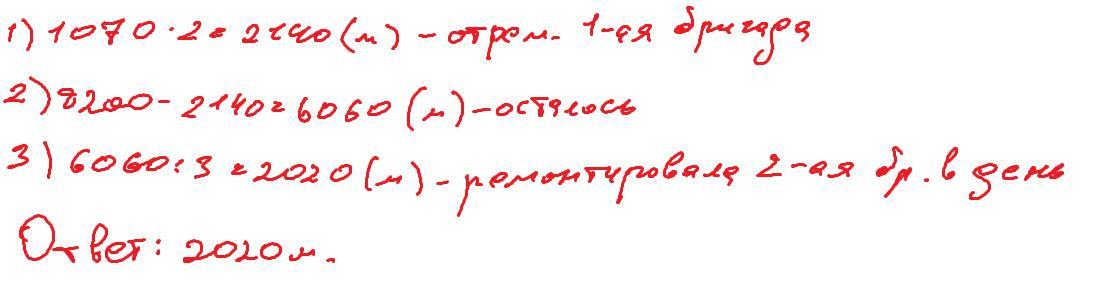 1) 1070 · 2 = 2140 (м) - отрем. 1-ая бригада
2) 8200 - 2140 = 6060 (м) - осталось
3) 6060 : 3 = 2020 (м) - ремонтировала 2-ая бр. в день
Ответ: 2020 м.